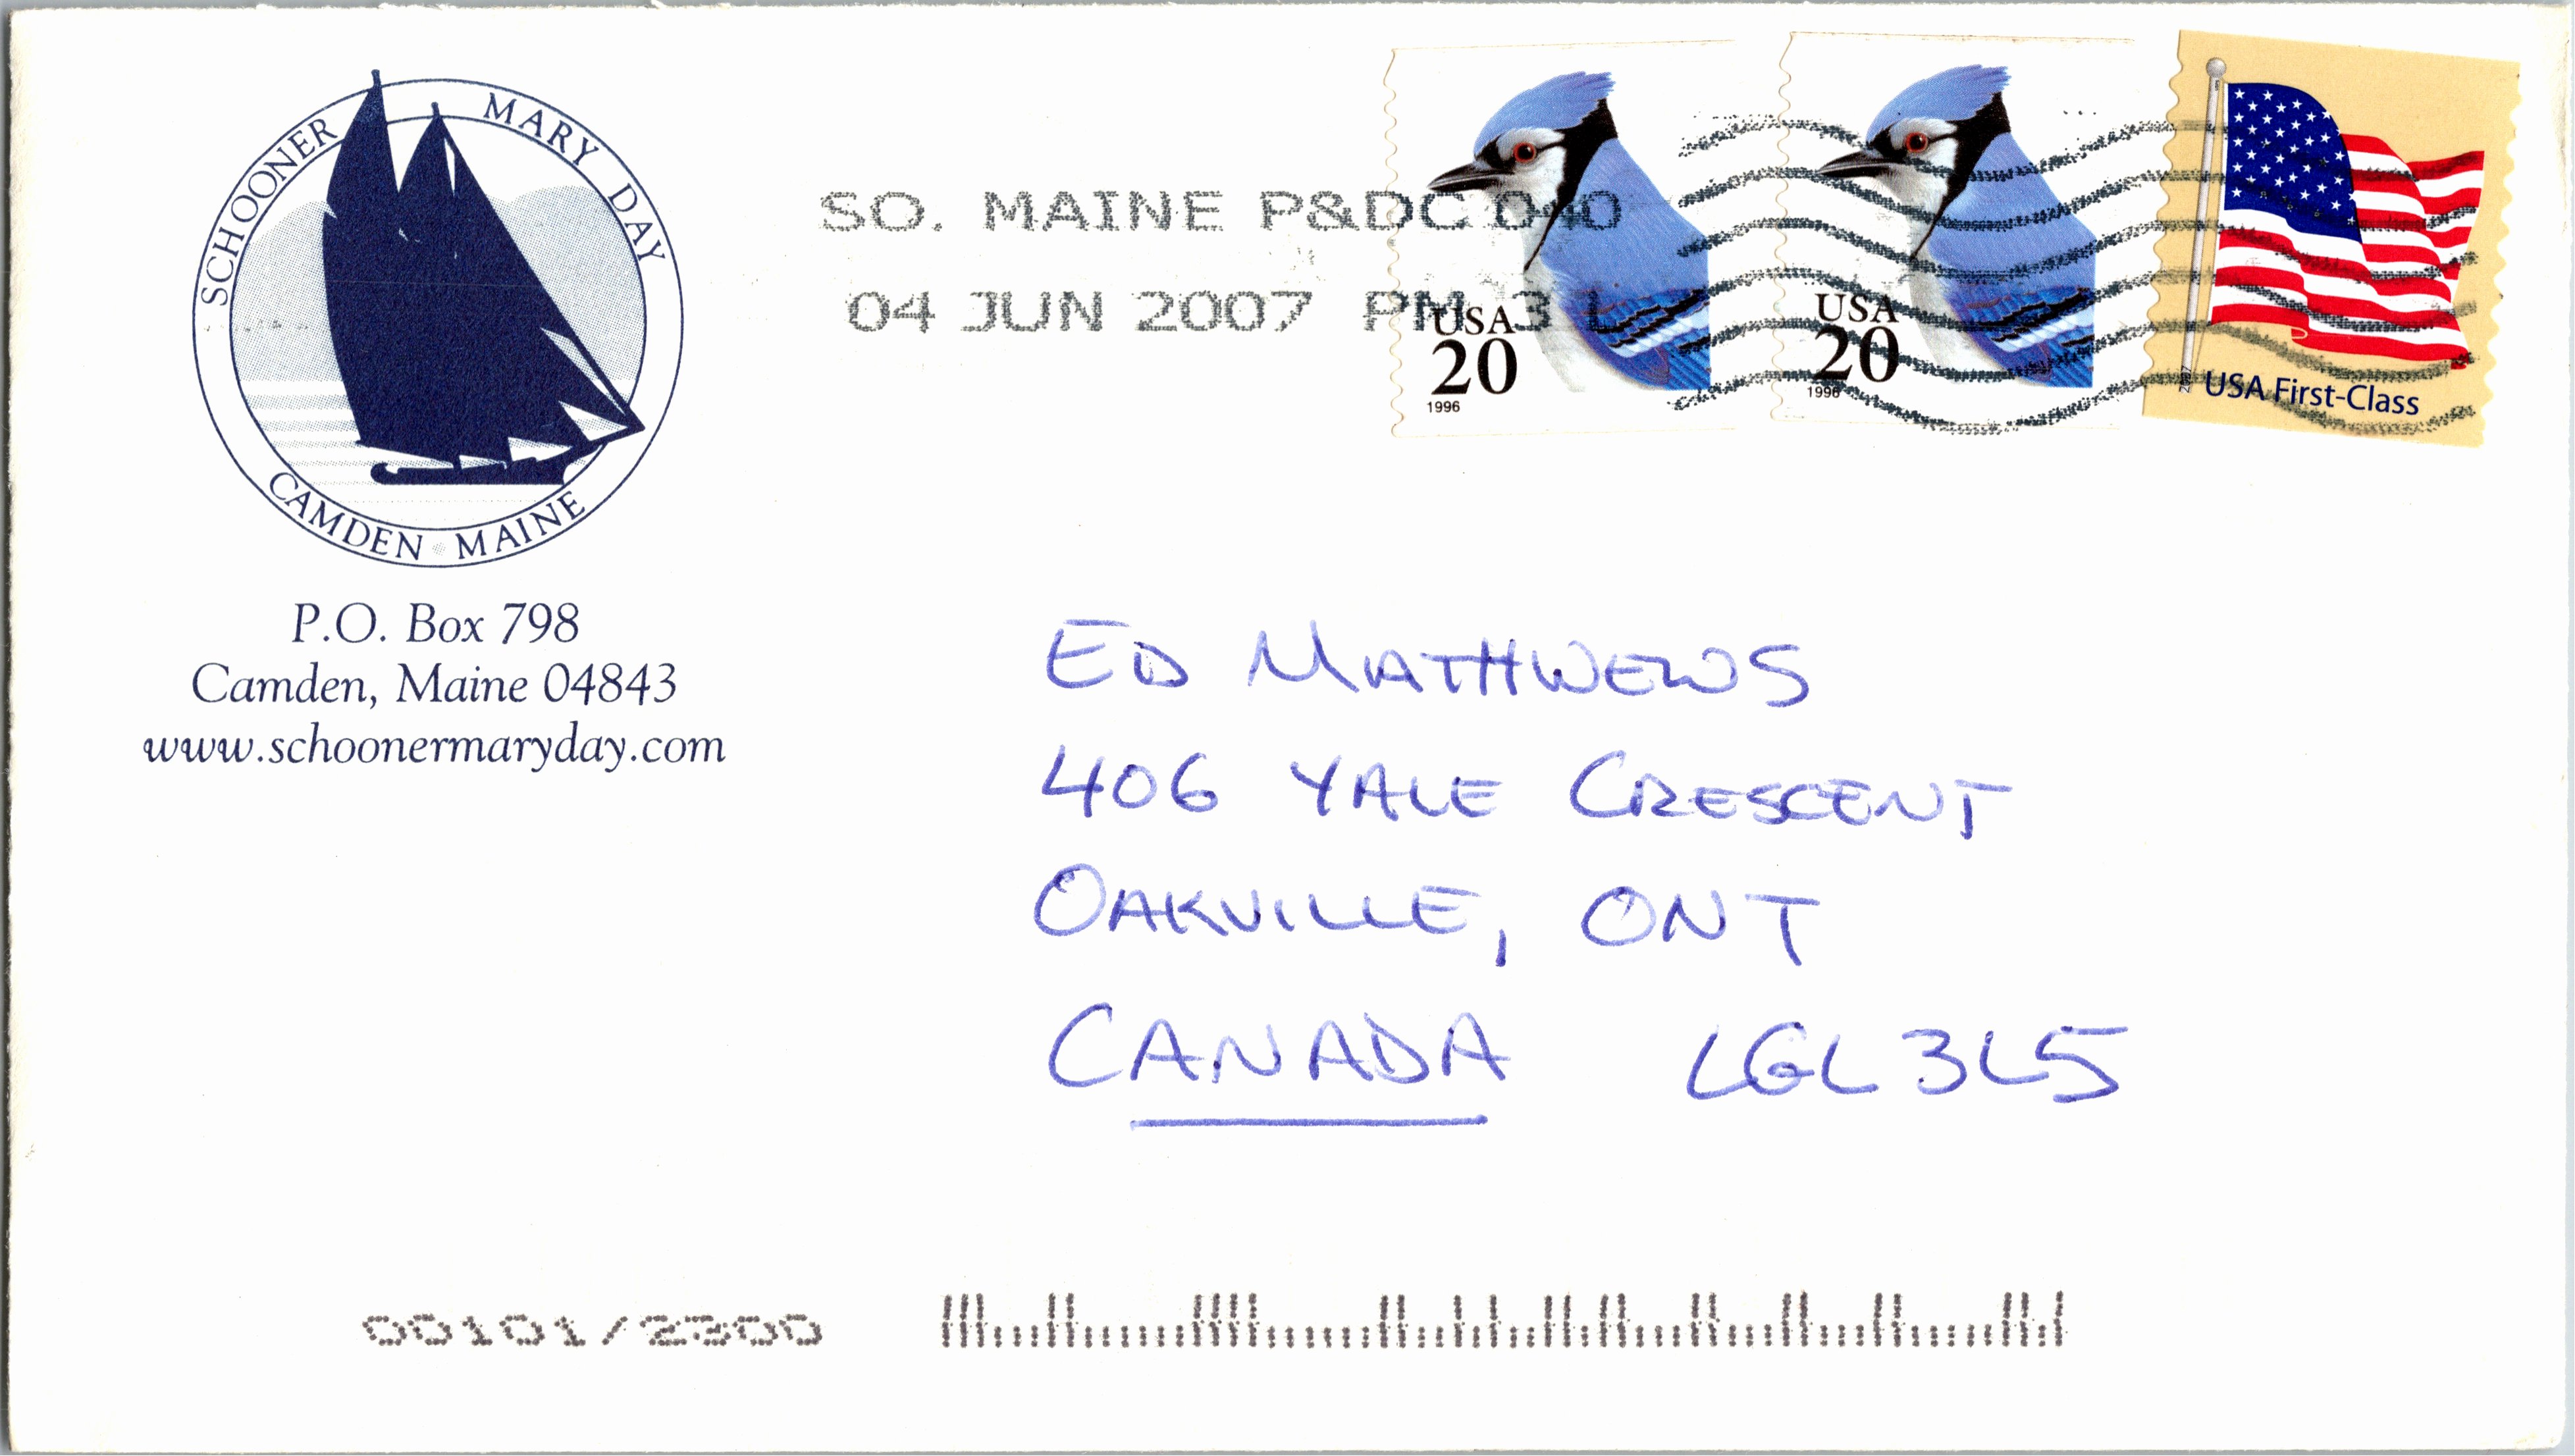 SCHOONER MARY DAY
CAMDEN MAINE
P.O. Box 798
Camden, Maine 04843
www.schoonermaryday.com
SO. MAINE P&DC 040
04 JUN 2007 PM 3 L
USA
20
1996
USA
20
1996
2007
USA First-Class
ED MATHWEWS
406 YALE CRESCENT
OAKVILLE, ONT
CANADA LGL 3L5
00101/2300